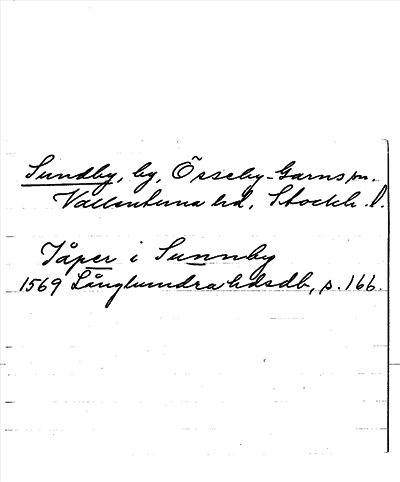 Sundby, by, Össeby-Garns sn.
Vallentuna hd, Stockh. l.
Jåper i Sunnby
1569 Långhundra hdsdb, s. 166.